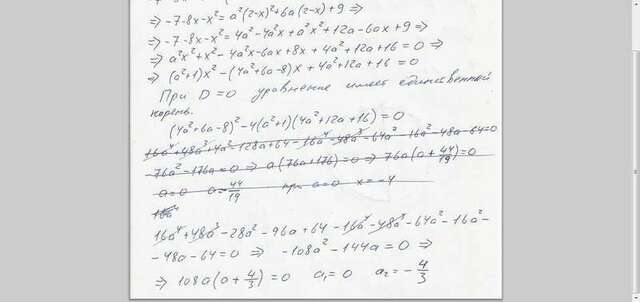 ⇒ -7-8x-x² = a²(2-x)²+6a(2-x)+9 ⇒
⇒ -7-8x-x² = 4a²-4a²x+a²x²+12a-6ax+9 ⇒
⇒ a²x²+x²-4a²x-6ax+8x+4a²+12a+16=0 ⇒
⇒ (a²+1)x²-(4a²+6a-8)x+4a²+12a+16=0
При D=0 уравнение имеет единственный
корень.
(4a²+6a-8)²-4(a²+1)(4a²+12a+16)=0
16a⁴+48a³+4a²-128a+64-16a⁴-48a³-64a²-16a²-48a-64=0
-76a²-176a=0 ⇒ a(76a+176)=0 ⇒ 76a(a+44/19)=0
a=0 a=-44/19 при a=0 x=-4
16a⁴
16a⁴+48a³-28a²-96a+64-16a⁴-48a³-64a²-16a²-
-48a-64=0 ⇒ -108a²-144a=0 ⇒
⇒ 108a(a+4/3)=0 a₁=0 a₂=-4/3